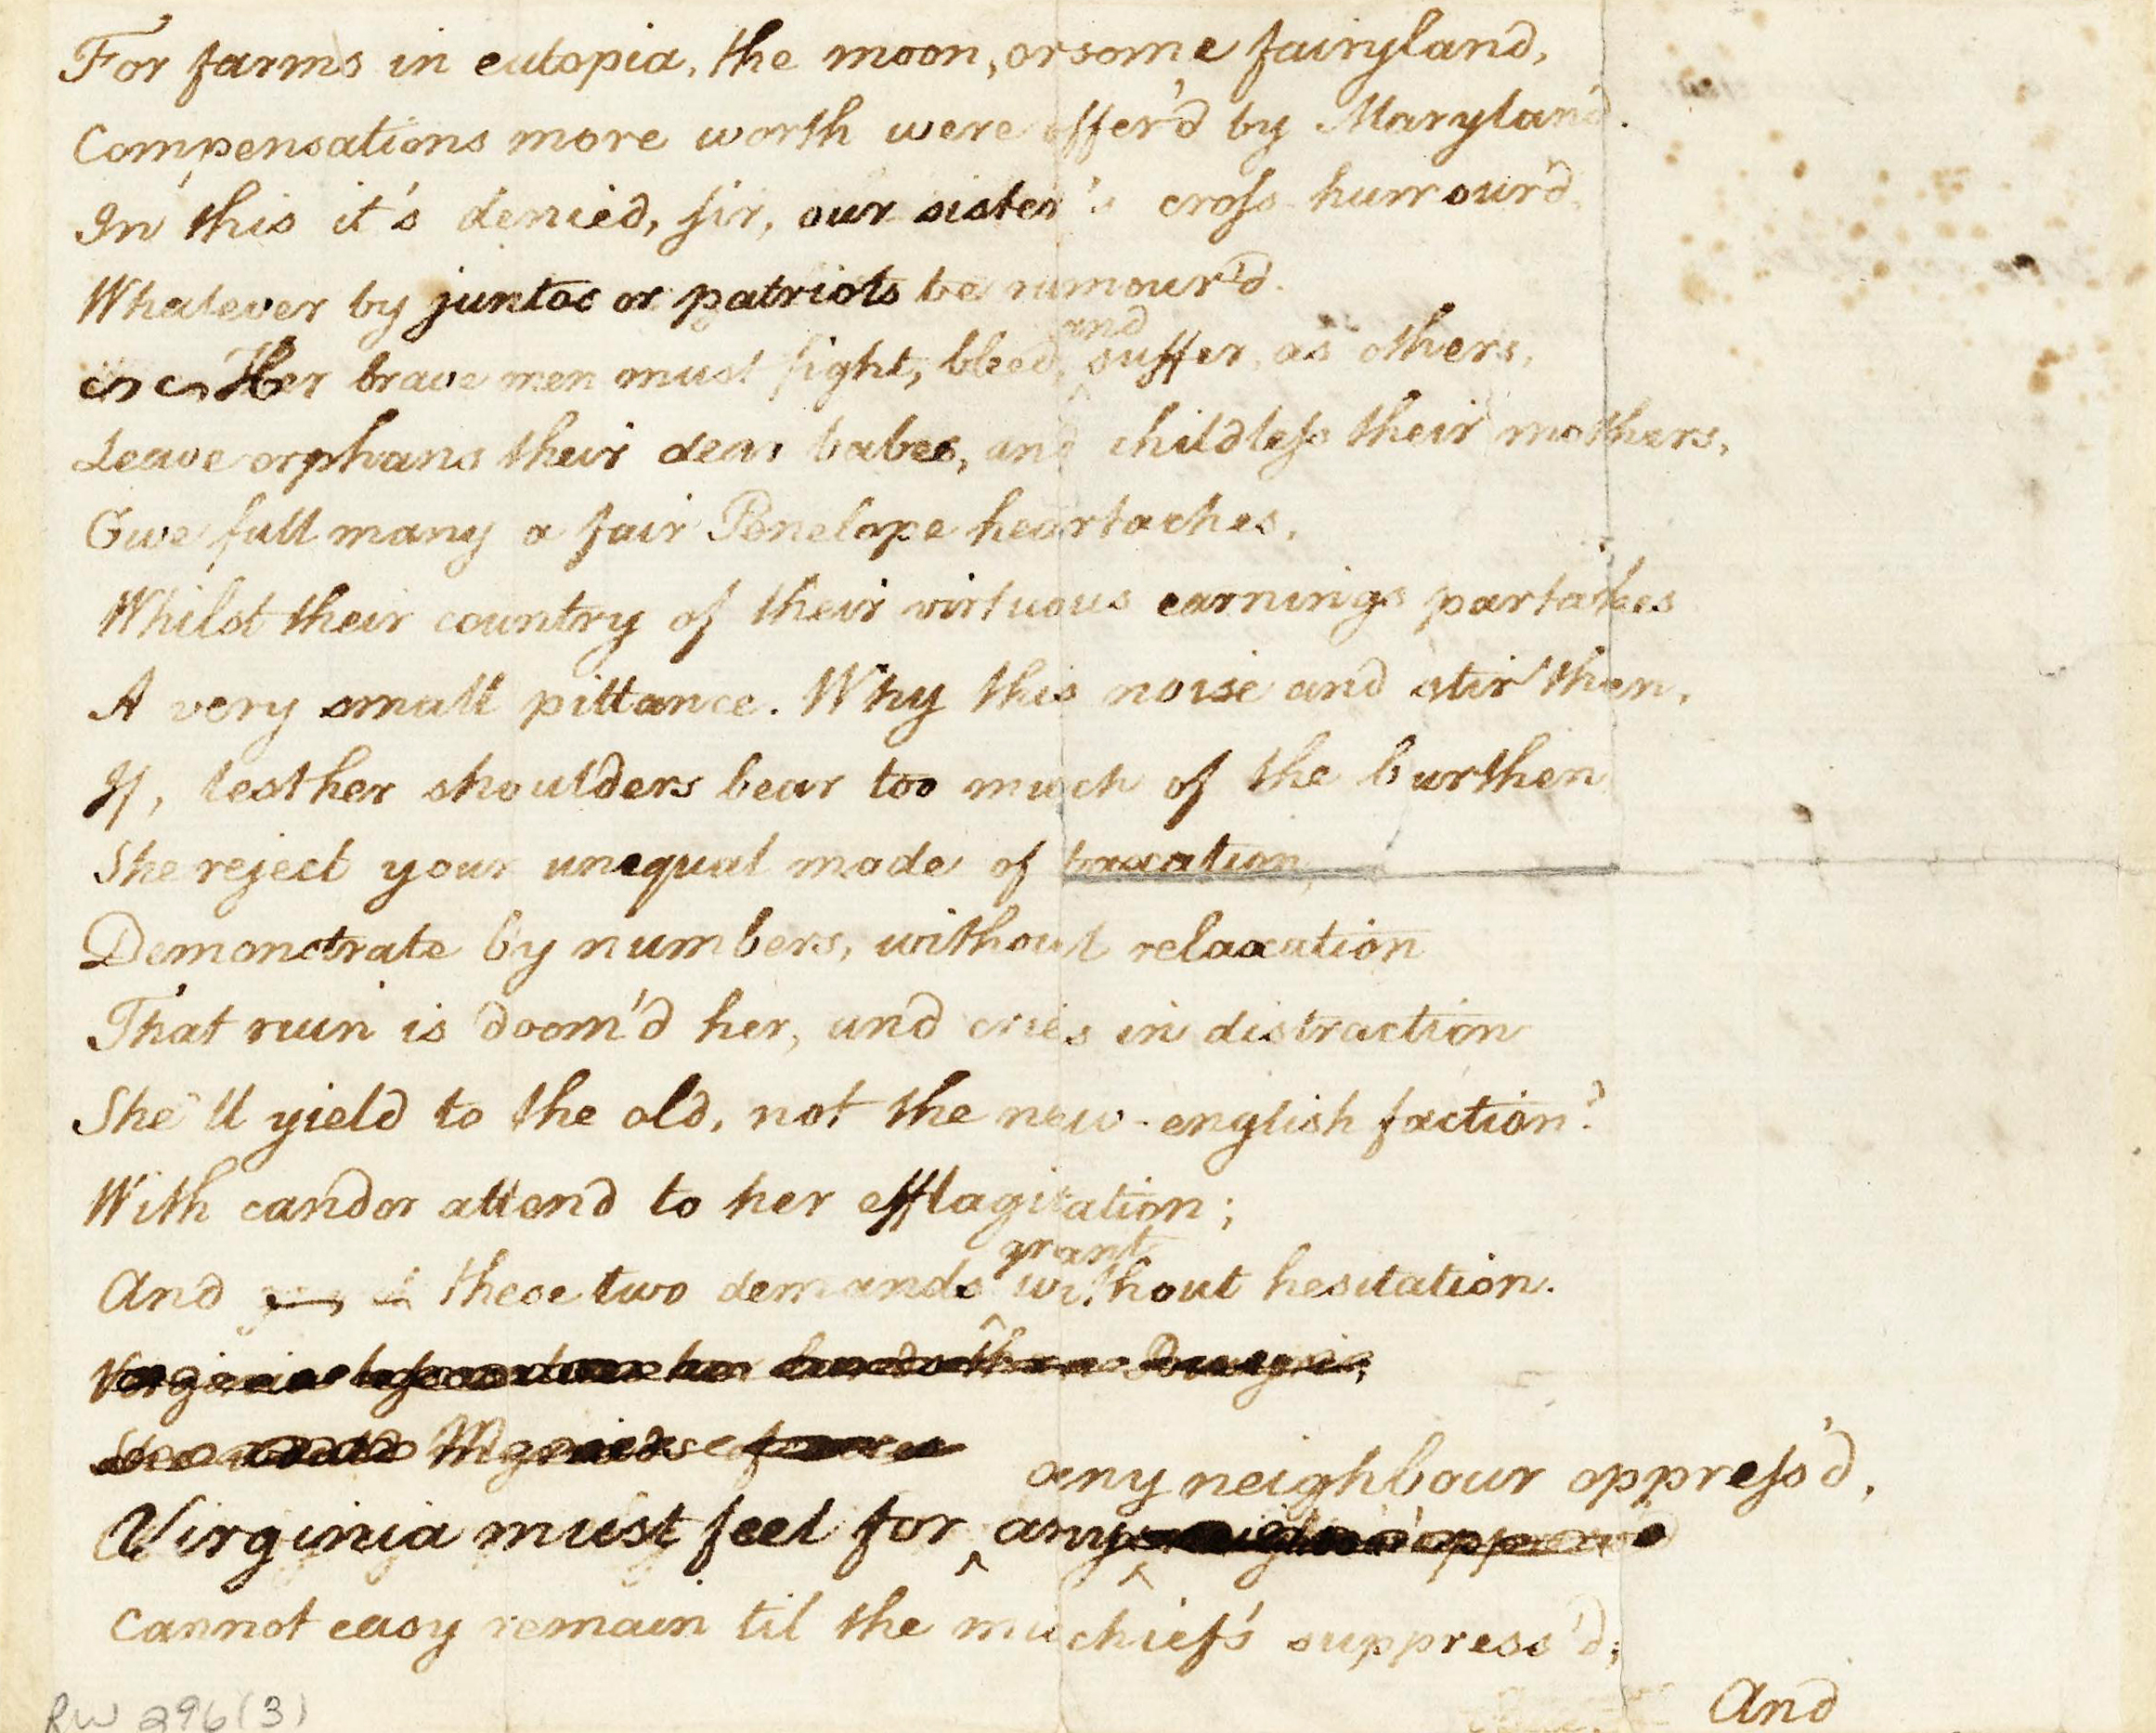 For farms in eutopia, the moon, or some fairyland,
Compensations more worth were offer'd by Maryland.
In this it's denied, sir, our sister's cross-humour'd,
Whatever by juntos or patriots be rumour'd.
Her brave men must fight, bleed, and suffer, as others,
Leave orphans their dear babes, and childless their mothers,
Give full many a fair Penelope heartaches,
Whilst their country of their virtuous earnings partakes
A very small pittance. Why this noise and stir then,
If, lest her shoulders bear too much of the burthen
She reject your unequal mode of taxation,
Demonstrate by numbers, without relaxation
That ruin is doom'd her, and cries in distraction
She'll yield to the old, not the new-english faction?
With candor attend to her efflagitation;
And these two demands grant without hesitation.
any neighbour oppress'd,
Virginia must feel for any
Cannot easy remain til the mischief's suppress'd;
And
RW 296(3)